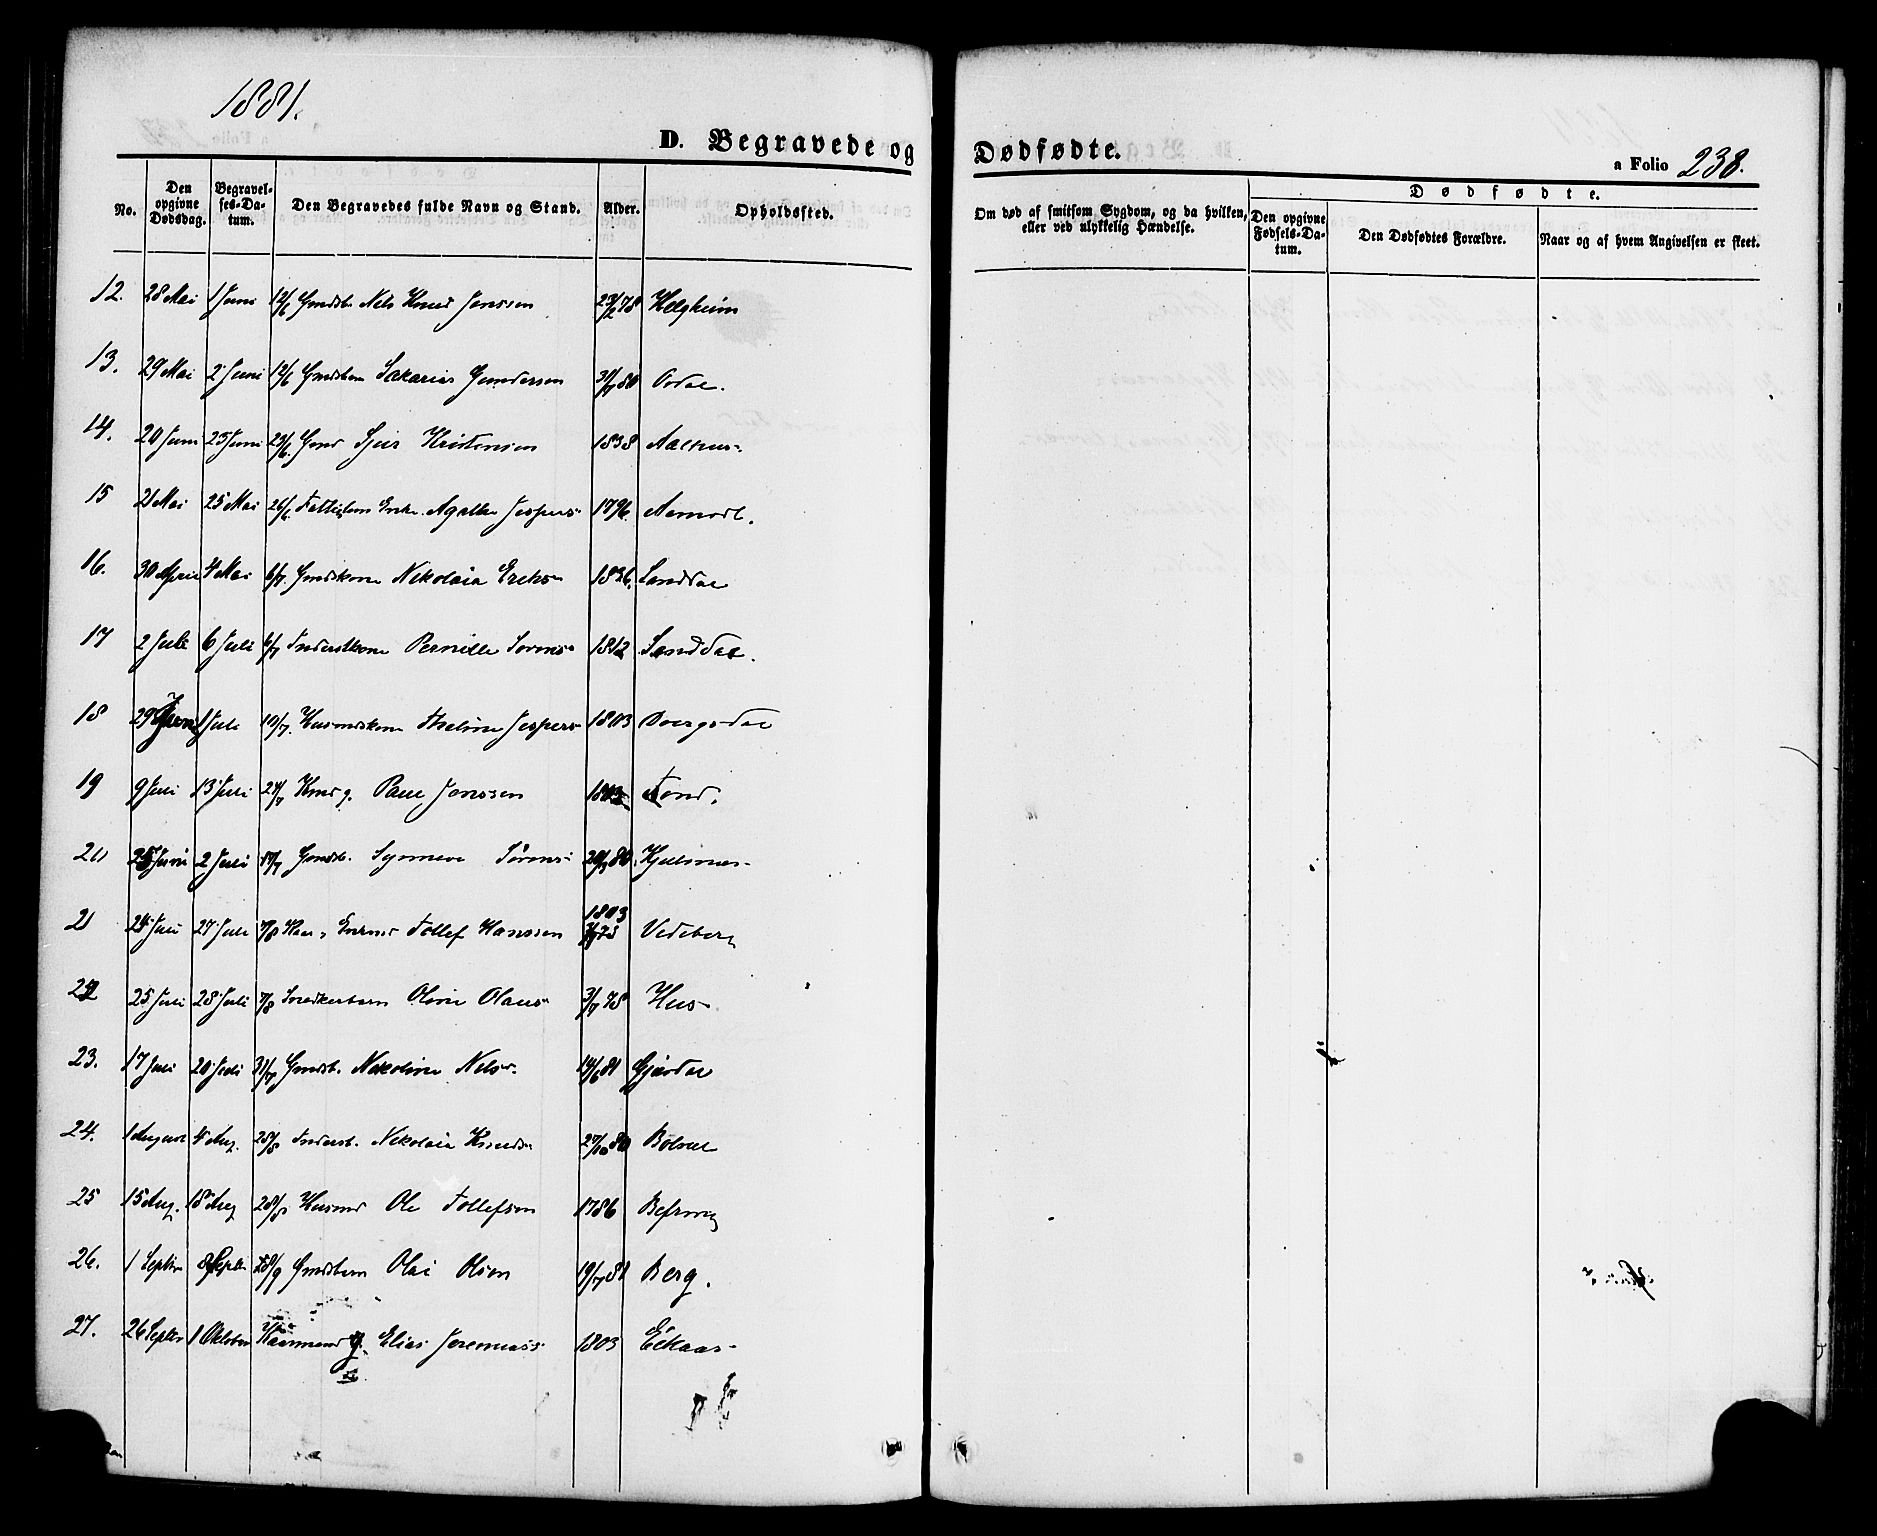 1881.
D. Begravede og Dødfødte.
a Folio 238.
No.
Den opgivne Dødsdag.
Begravelses-Datum.
Den Begravedes fulde Navn og Stand.
Alder.
Opholdssted.
Om død af smitsom Sygdom, og da hvilken, eller ved ulykkelig Hændelse.
Dødfødte.
Den opgivne Fødsels-Datum.
Den Dødfødtes Forældre.
Naar og af hvem Angivelsen er skeet.
12. 28 Mai 1 Juni 12/6 Gmdsb. Nels Knud Jonssen 78 Helgheim
13. 29 Mai 2 Juni 12/6 Gmdsbarn Sakarias Gundersen 80
14. 20 Juni 23 Juni 23/6 Gmd Sjur Kristensen 1838 Aalhus
15 21 Mai 25 Mai 26/6 Enke Agathe Jespers 1796. Aamodt.
16. 30 April 4 Mai 6/7. Gmdskone Nikolaia Eriks 1836. Sanddal
17 2 Juli 6 Juli 6/7 Inderstkone Pernille Sørens 1812 Sanddal.
18 29 Juni 1 Juli 10/7. Husmdskone Jespers 1803
19 9 Juli 13 Juli 24/7 g. Paul Jonssen
20 Juni 2 Juli 17/7 Gmdsb. Synneve Sørens 80
21 24 Juli 27 Juli 7/8 Tollef Hanssen 1803 Vedeberg
22 25 Juli 28 Juli 7/8 Snedkerbarn Oline Olaus 3/7 78 Hus
23. 17 Juli 20 Juli 31/7 Gmdsb. Nikoline Nels 14/6 81
24. 1 August 4 Aug. 28/8 Inderstb. Nikolaia Knuds 27/10 80
25 15 Aug. 18 Aug 28/8 Husmd Ole Tollefsen 1786 Befring
26. 1 Septbr 8 Septbr 18/9 Gmdsbarn Olai Olsen 19/7 81 Berg.
27. 26 Septbr 1 Oktober g. Elias Jeremiass 1803 Eikaas